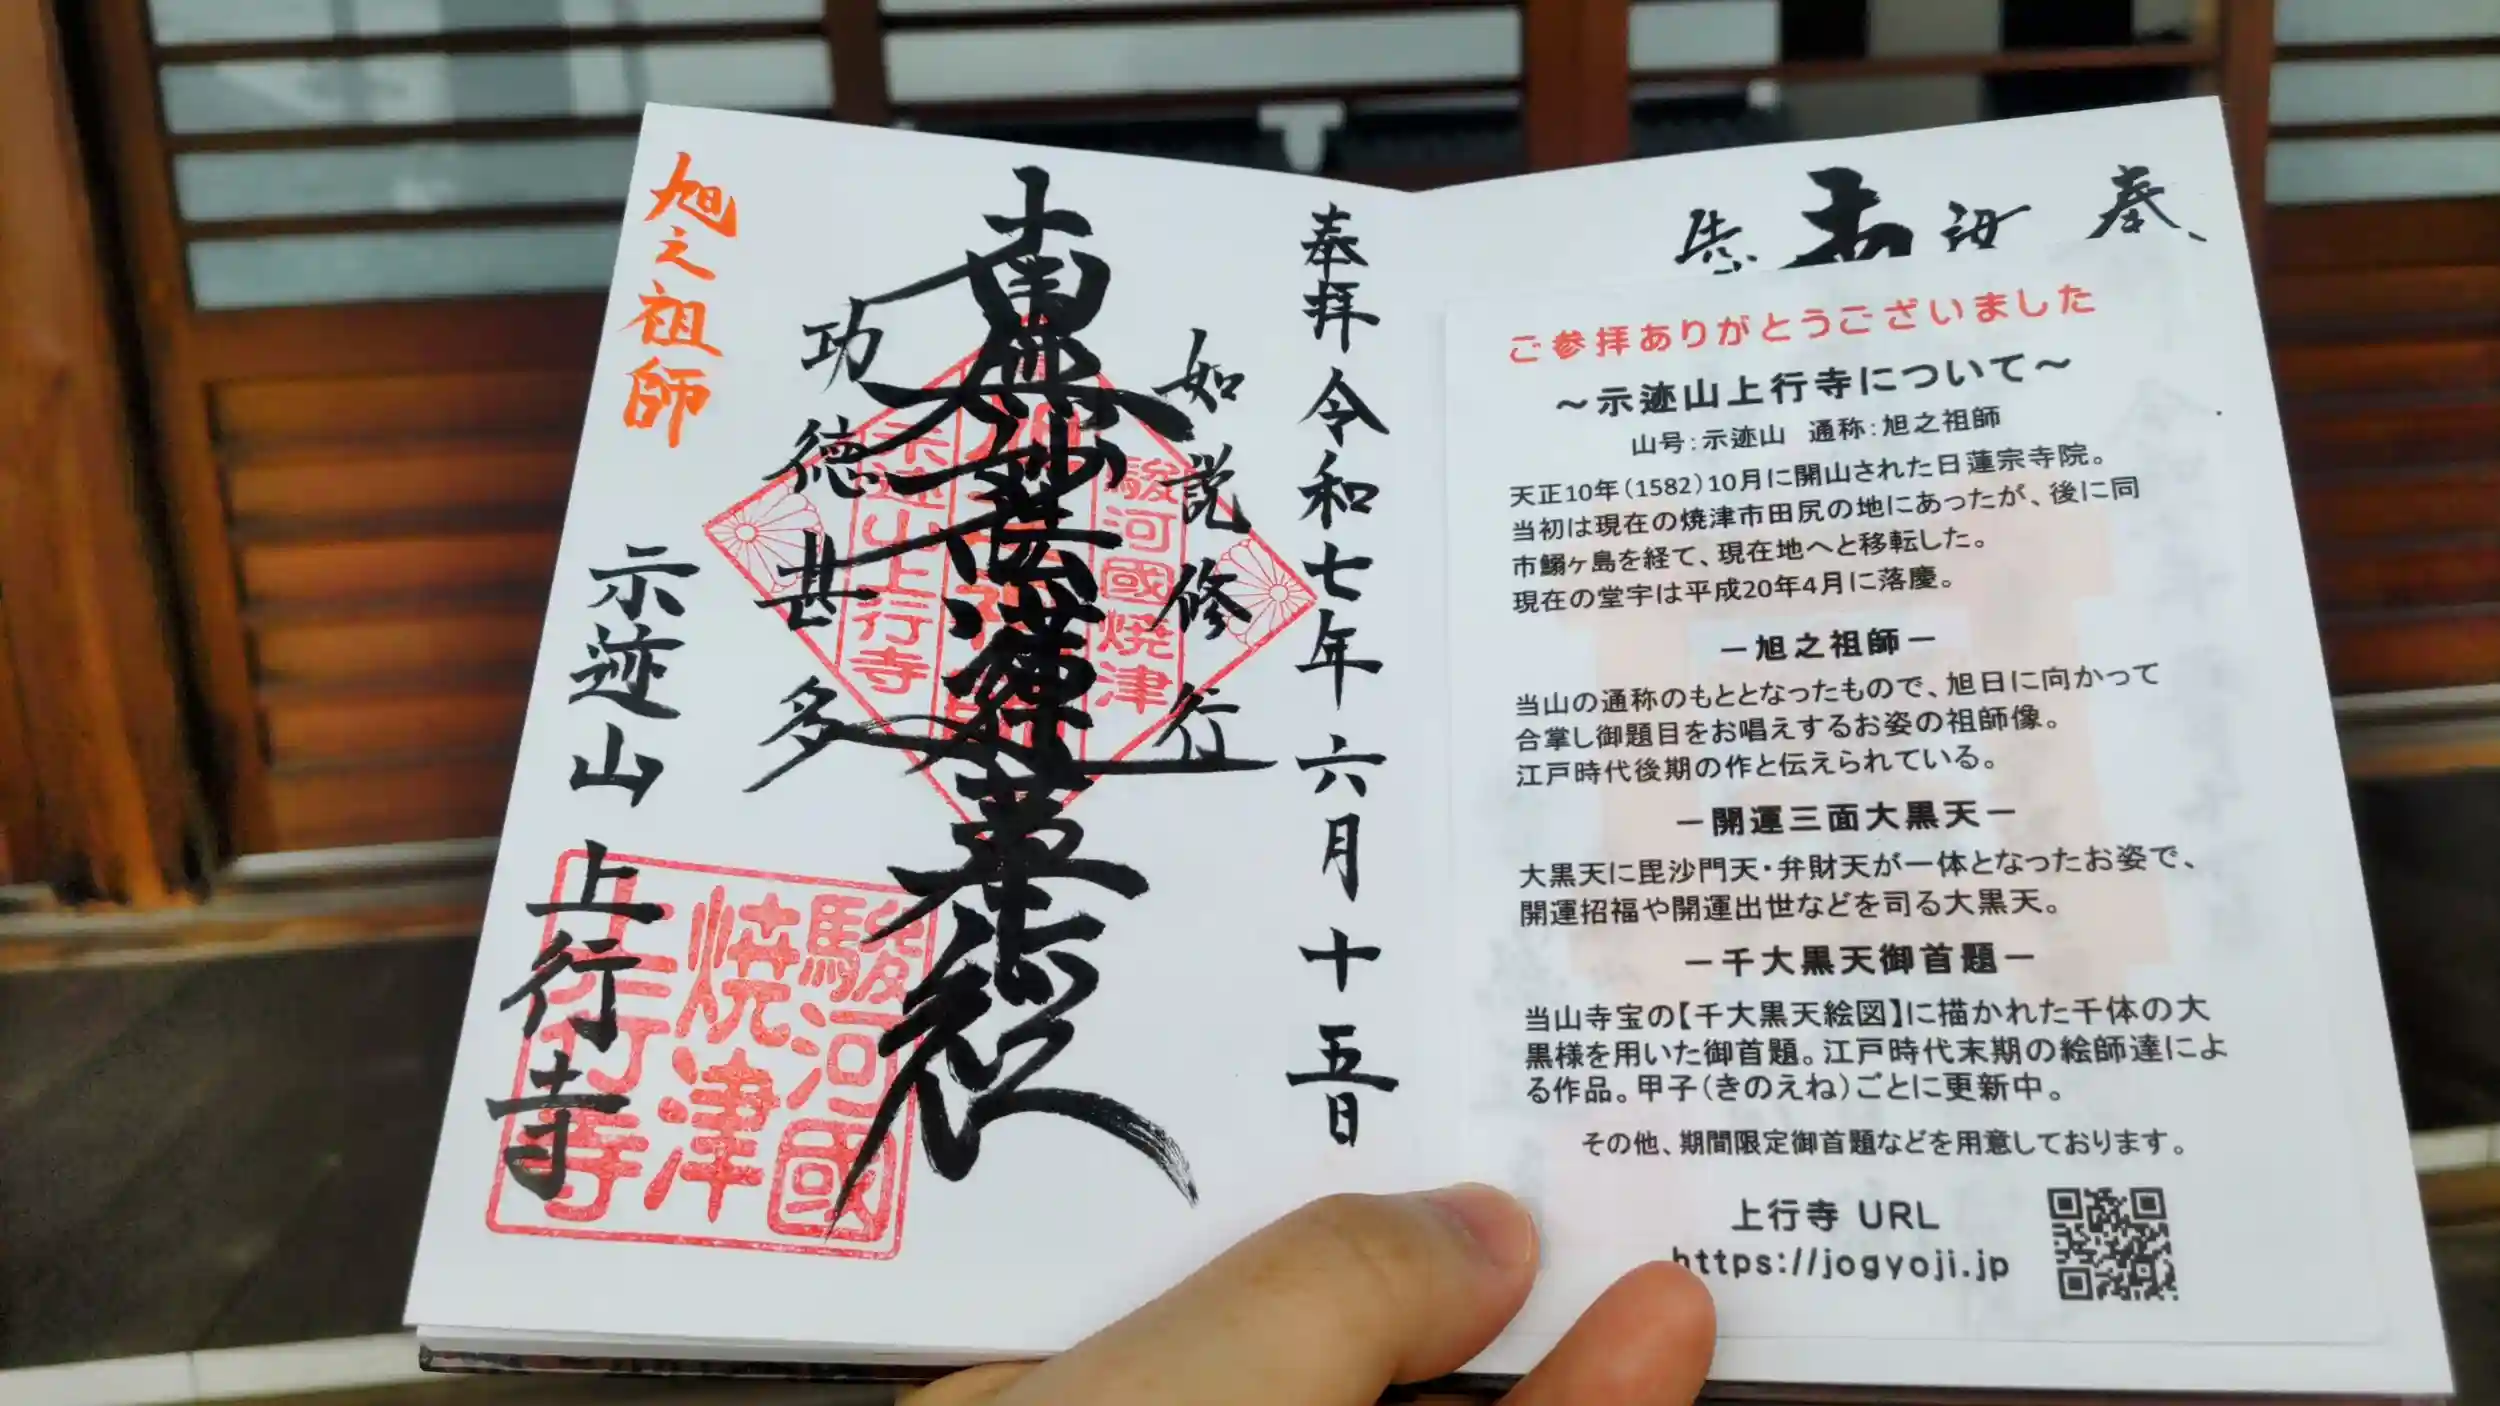 奉拝 令和七年 六月 十五日
如説修行
南無妙法蓮華経
功徳甚多
旭之祖師
示迹山 上行寺
駿河國焼津
旭之祖師
示迹山上行寺
駿河國
焼津
上行寺
奉
ご参拝ありがとうございました
～示迹山上行寺について～
山号：示迹山 通称：旭之祖師
天正10年（1582）10月に開山された日蓮宗寺院。
当初は現在の焼津市田尻の地にあったが、後に同
市鰯ヶ島を経て、現在地へと移転した。
現在の堂宇は平成20年4月に落慶。
－旭之祖師－
当山の通称のもととなったもので、旭日に向かって
合掌し御題目をお唱えするお姿の祖師像。
江戸時代後期の作と伝えられている。
－開運三面大黒天－
大黒天に毘沙門天・弁財天が一体となったお姿で、
開運招福や開運出世などを司る大黒天。
－千大黒天御首題－
当山寺宝の【千大黒天絵図】に描かれた千体の大
黒様を用いた御首題。江戸時代末期の絵師達によ
る作品。甲子（きのえね）ごとに更新中。
その他、期間限定御首題などを用意しております。
上行寺 URL
https://jogyoji.jp